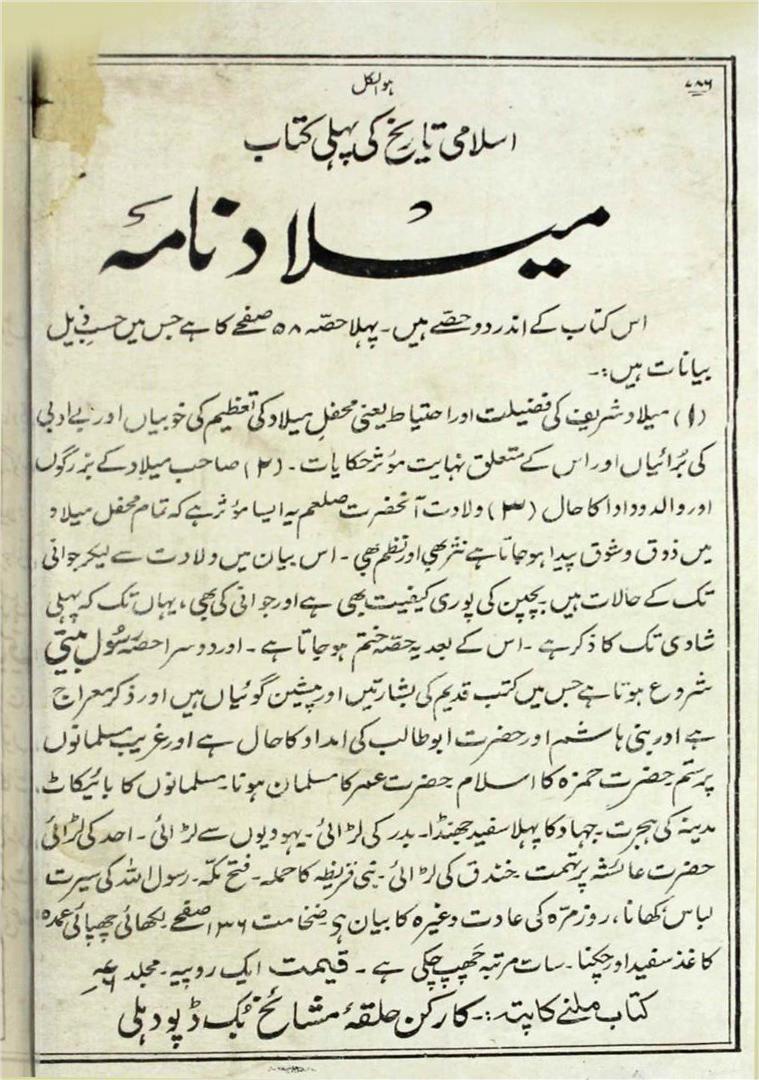 ۷۸۶
ہو الکل
اسلامی تاریخ کی پہلی کتاب
میلاد نامہ
اس کتاب کے اندر دو حصّے ہیں۔ پہلا حصّہ ۵۸ صفحے کا ہے جس میں حسبِ ذیل
بیانات ہیں:۔
(۱) میلاد شریف کی فضیلت اور احتیاط یعنی محفلِ میلاد کی تعظیم کی خوبیاں اور بے ادبی
کی بُرائیاں اور اس کے متعلق نہایت مؤثر حکایات۔ (۲) صاحب میلاد کے بزرگوں
اور والد و دادا کا حال (۳) ولادت آنحضرت صلعم یہ ایسا مؤثر ہے کہ تمام محفل میلاد
میں ذوق و شوق پیدا ہو جاتا ہے نثر بھی اور نظم بھی۔ اس بیان میں ولادت سے لیکر جوانی
تک کے حالات ہیں بچپن کی پوری کیفیت بھی ہے اور جوانی کی بھی، یہاں تک کہ پہلی
شادی تک کا ذکر ہے۔ اس کے بعد یہ حصّہ ختم ہو جاتا ہے۔ اور دوسرا حصہ رسول بیتی
شروع ہوتا ہے جس میں کتب قدیم کی بشارتیں اور پیشین گوئیاں ہیں اور ذکر معراج
ہے اور بنی ہاشم اور حضرت ابو طالب کی امداد کا حال ہے اور غریب مسلمانوں
پر ستم۔ حضرت حمزہ کا اسلام۔ حضرت عمر کا مسلمان ہونا۔ مسلمانوں کا بائیکاٹ۔
مدینہ کی ہجرت۔ جہاد کا پہلا سفید جھنڈا۔ بدر کی لڑائی۔ یہودیوں سے لڑائی۔ احد کی لڑائی
حضرت عائشہ پر تہمت۔ خندق کی لڑائی۔ بنی قریظہ کا حملہ۔ فتح مکّہ۔ رسول اللہ کی سیرت
لباس کھانا، روزمرّہ کی عادت وغیرہ کا بیان ہے ضخامت ۱۳۶ صفحے لکھائی چھپائی عمدہ
کاغذ سفید اور چکنا۔ سات مرتبہ چھپ چکی ہے۔ قیمت ایک روپیہ۔ مجلد
کتاب ملنے کا پتہ:۔ کارکن حلقۂ مشائخ بک ڈپو دہلی